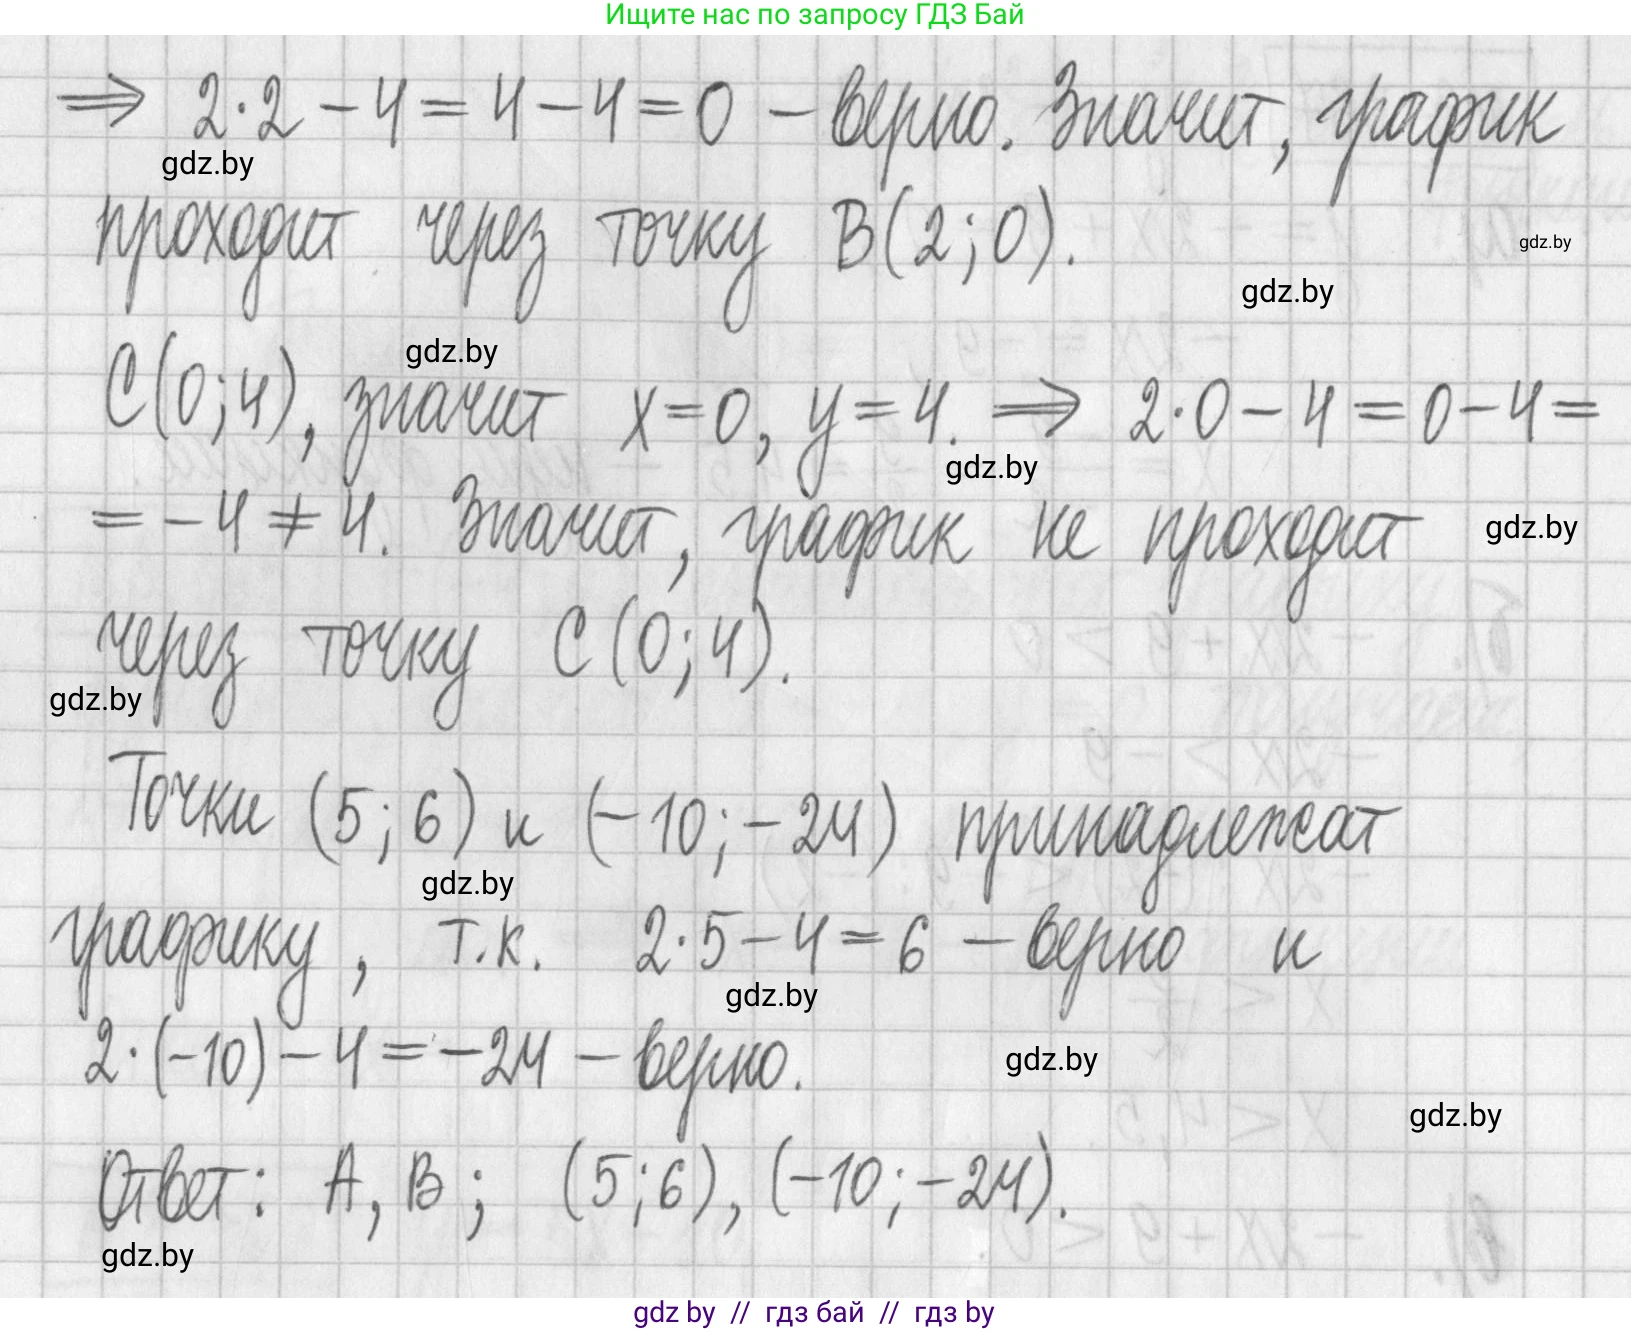 Ищите нас по запросу ГДЗ Бай
⇒ 2·2 − 4 = 4 − 4 = 0 − верно. Значит, график
gdz.by
проходит через точку B(2;0).
gdz.by
gdz.by
gdz.by
C(0;4), значит x=0, y=4. ⇒ 2·0 − 4 = 0 − 4 =
gdz.by
= −4 ≠ 4. Значит, график не проходит
gdz.by
через точку C(0;4).
gdz.by
Точки (5;6) и (−10;−24) принадлежат
gdz.by
графику, т.к. 2·5 − 4 = 6 − верно и
gdz.by
2·(−10) − 4 = −24 − верно.
gdz.by
gdz.by
Ответ: A, B; (5;6), (−10;−24).
gdz.by
gdz by // гдз бай // гдз by